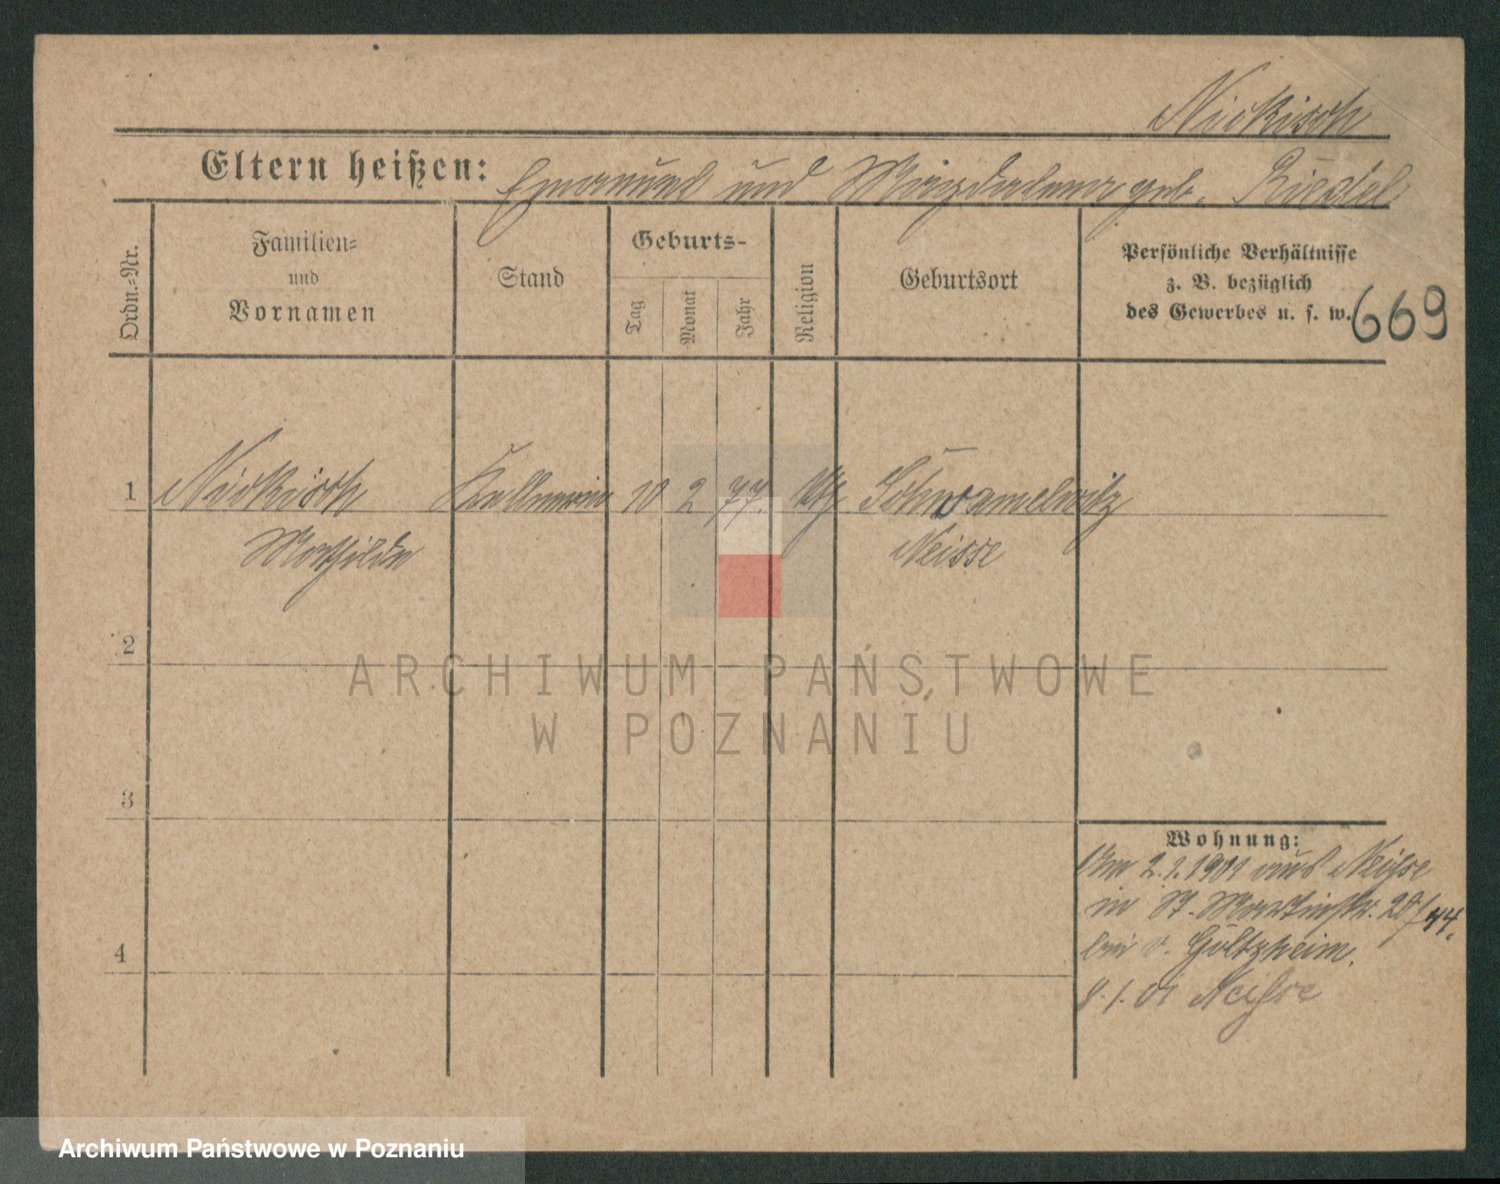 Nickisch
Eltern heißen: Emanuel und Magdalena geb. Riedel
Ordn.-Nr.
Familien-
und
Vornamen
Stand
Geburts-
Tag
Monat
Jahr
Religion
Geburtsort
Persönliche Verhältnisse
z. B. bezüglich
des Gewerbes u. s. w.
669
1 Nickisch Kellnerin 10 2 77. Schwamelwitz
Mathilde Neisse
2
ARCHIWUM PAŃSTWOWE
W POZNANIU
3
Wohnung:
2.1.1901 aus Neisse
in St. Martinstr. 28/
bei v. Goltzheim.
8.1.01 Neisse
4
Archiwum Państwowe w Poznaniu